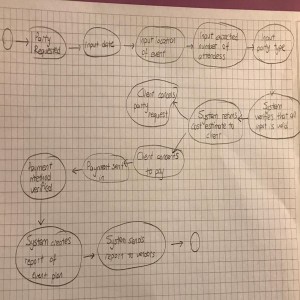 Party
Requested
Input date
Input location
of event
Input expected
number of
attendees
Input
party type
System
verifies that all
input is valid
System returns
cost estimate to
client
Client cancels
party
request
Client consents
to pay
Payment sent
in
Payment
method
verified
System creates
report of
event plan
System sends
report to vendors